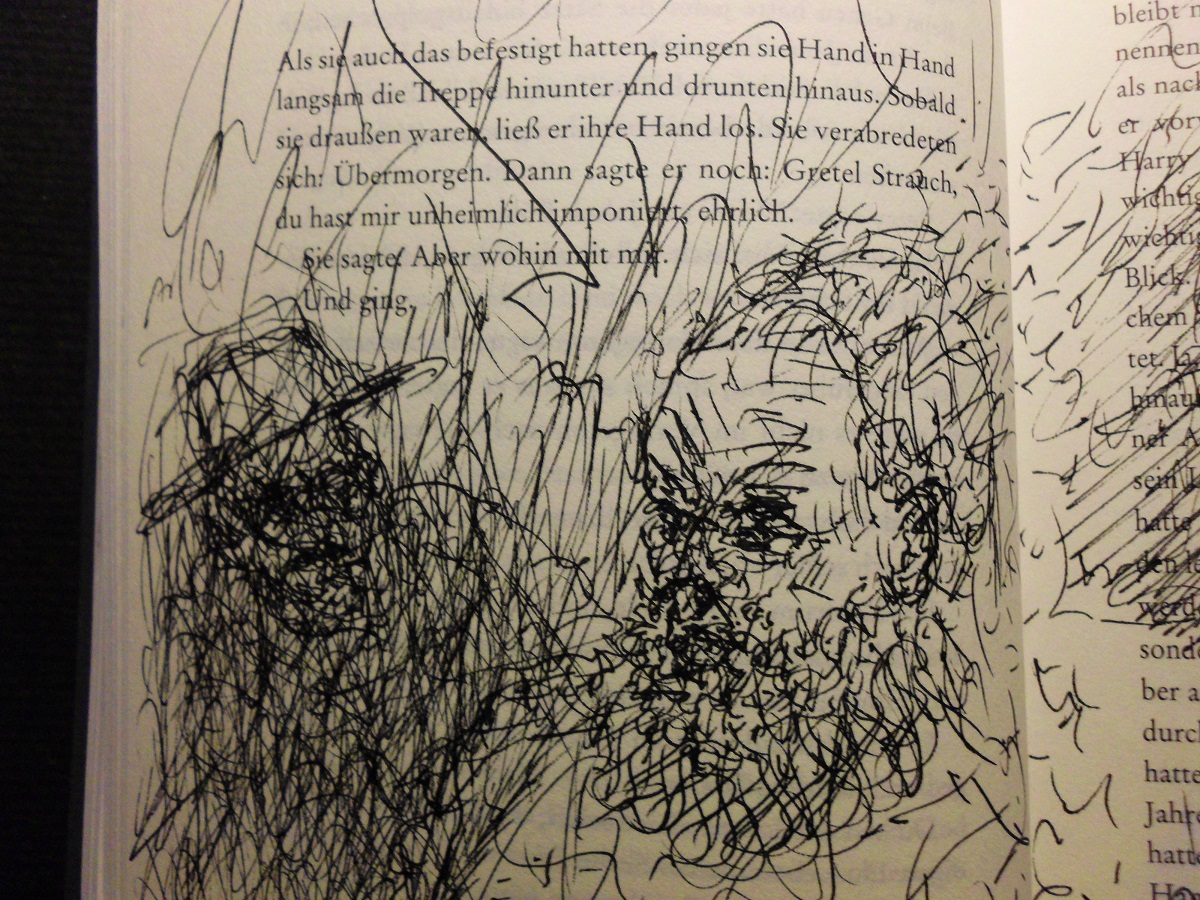 Als sie auch das befestigt hatten, gingen sie Hand in Hand
langsam die Treppe hinunter und drunten hinaus. Sobald
sie draußen waren, ließ er ihre Hand los. Sie verabredeten
sich: Übermorgen. Dann sagte er noch: Gretel Strauch,
du hast mir unheimlich imponiert, ehrlich.
Sie sagte: Aber wohin mit mir.
Und ging.
bleibt
nennen
als nach
er
Harry
wichtig
wichtig
Blick.
chem
tet.
hinau
ner
sein
hatte
den
werd
sond
ber a
durch
hatte
Jahre
hatte